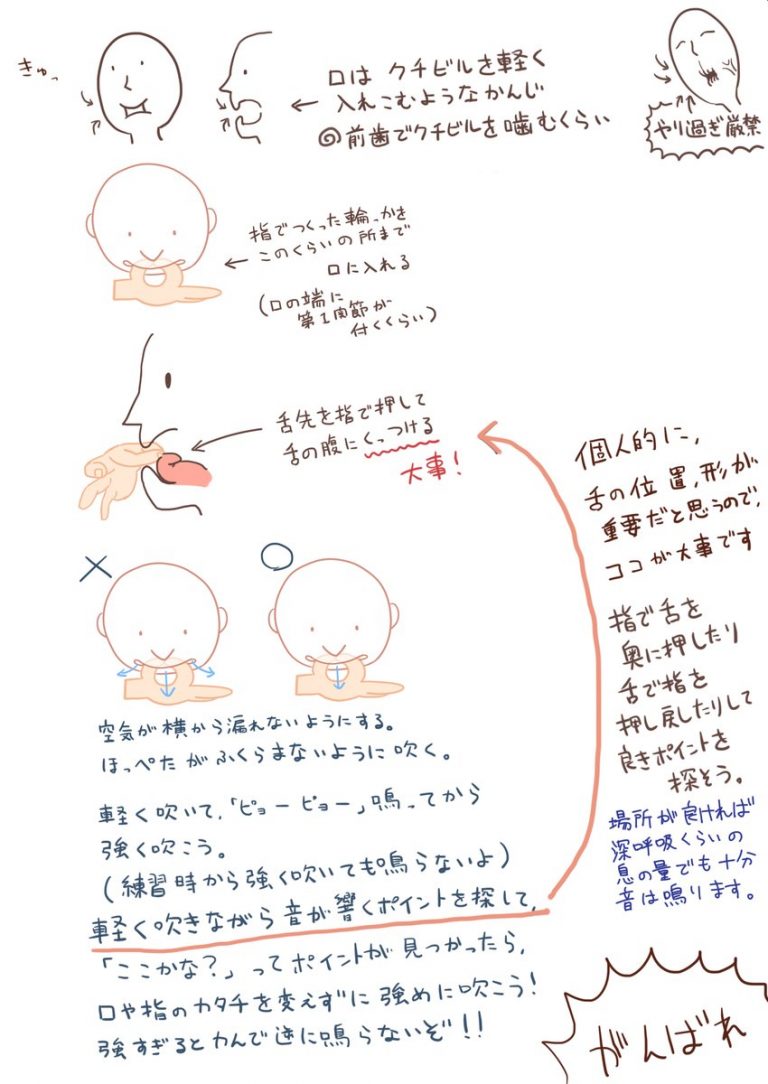 きゅっ
口は クチビルを軽く
入れこむようなかんじ
◎前歯でクチビルを噛むくらい
やり過ぎ厳禁
指でつくった輪っかを
このくらいの所まで
口に入れる
(口の端に
第1関節が
付くくらい)
舌先を指で押して
舌の腹にくっつける
大事!
個人的に、
舌の位置、形が
重要だと思うので、
ココが大事です
指で舌を
奥に押したり
舌で指を
押し戻したりして
良きポイントを
探そう。
場所が良ければ
深呼吸くらいの
息の量でも十分
音は鳴ります。
× ○
空気が横から漏れないようにする。
ほっぺたがふくらまないように吹く。
軽く吹いて、「ピョーピョー」鳴ってから
強く吹こう。
(練習時から強く吹いても鳴らないよ)
軽く吹きながら音が響くポイントを探して、
「ここかな?」ってポイントが見つかったら、
口や指のカタチを変えずに強めに吹こう!
強すぎるとカんで逆に鳴らないぞ!!
がんばれ